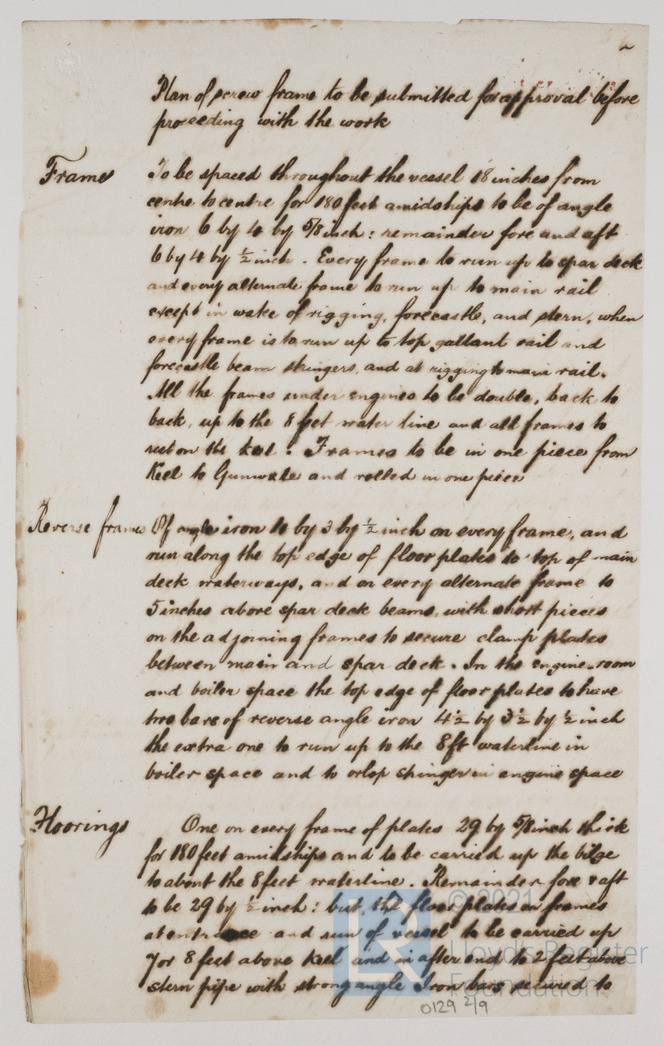 Plan of screw frame to be submitted for approval before
proceeding with the work
Frame To be spaced throughout the vessel 18 inches from
centre to centre for 180 feet amidships to be of angle
iron 6 by 4 by 5/8 inch: remainder fore and aft
6 by 4 by ½ inch. Every frame to run up to spar deck
and every alternate frame to run up to main rail
except in wake of rigging, forecastle, and stern, when
every frame is to run up to top gallant rail and
forecastle beam stringers, and at rigging to main rail.
All the frames under engines to be double, back to
back, up to the 8 feet water line and all frames to
rest on the keel. Frames to be in one piece from
Keel to Gunwale and rolled in one piece
Reverse frames Of angle iron 4 by 3 by ½ inch on every frame, and
run along the top edge of floor plates to top of main
deck waterways, and on every alternate frame to
5 inches above spar deck beams, with short pieces
on the adjoining frames to secure clamp plates
between main and spar deck. In the engine-room
and boiler space the top edge of floor plates to have
two bars of reverse angle iron 4½ by 3½ by ½ inch
the extra one to run up to the 8ft waterline in
boiler space and to orlop stringer in engine space
Floorings One on every frame of plates 29 by 5/8 inch thick
for 180 feet amidships and to be carried up the bilge
to about the 8 feet waterline. Remainder fore & aft
to be 29 by ½ inch: but, the floor plates on frames
at entrance and run of vessel to be carried up
7 or 8 feet above Keel and in after end to 2 feet above
stern pipe with strong angle Iron bars secured to
© 2021
Lloyd's Register
Foundation
LR
0129 2/9